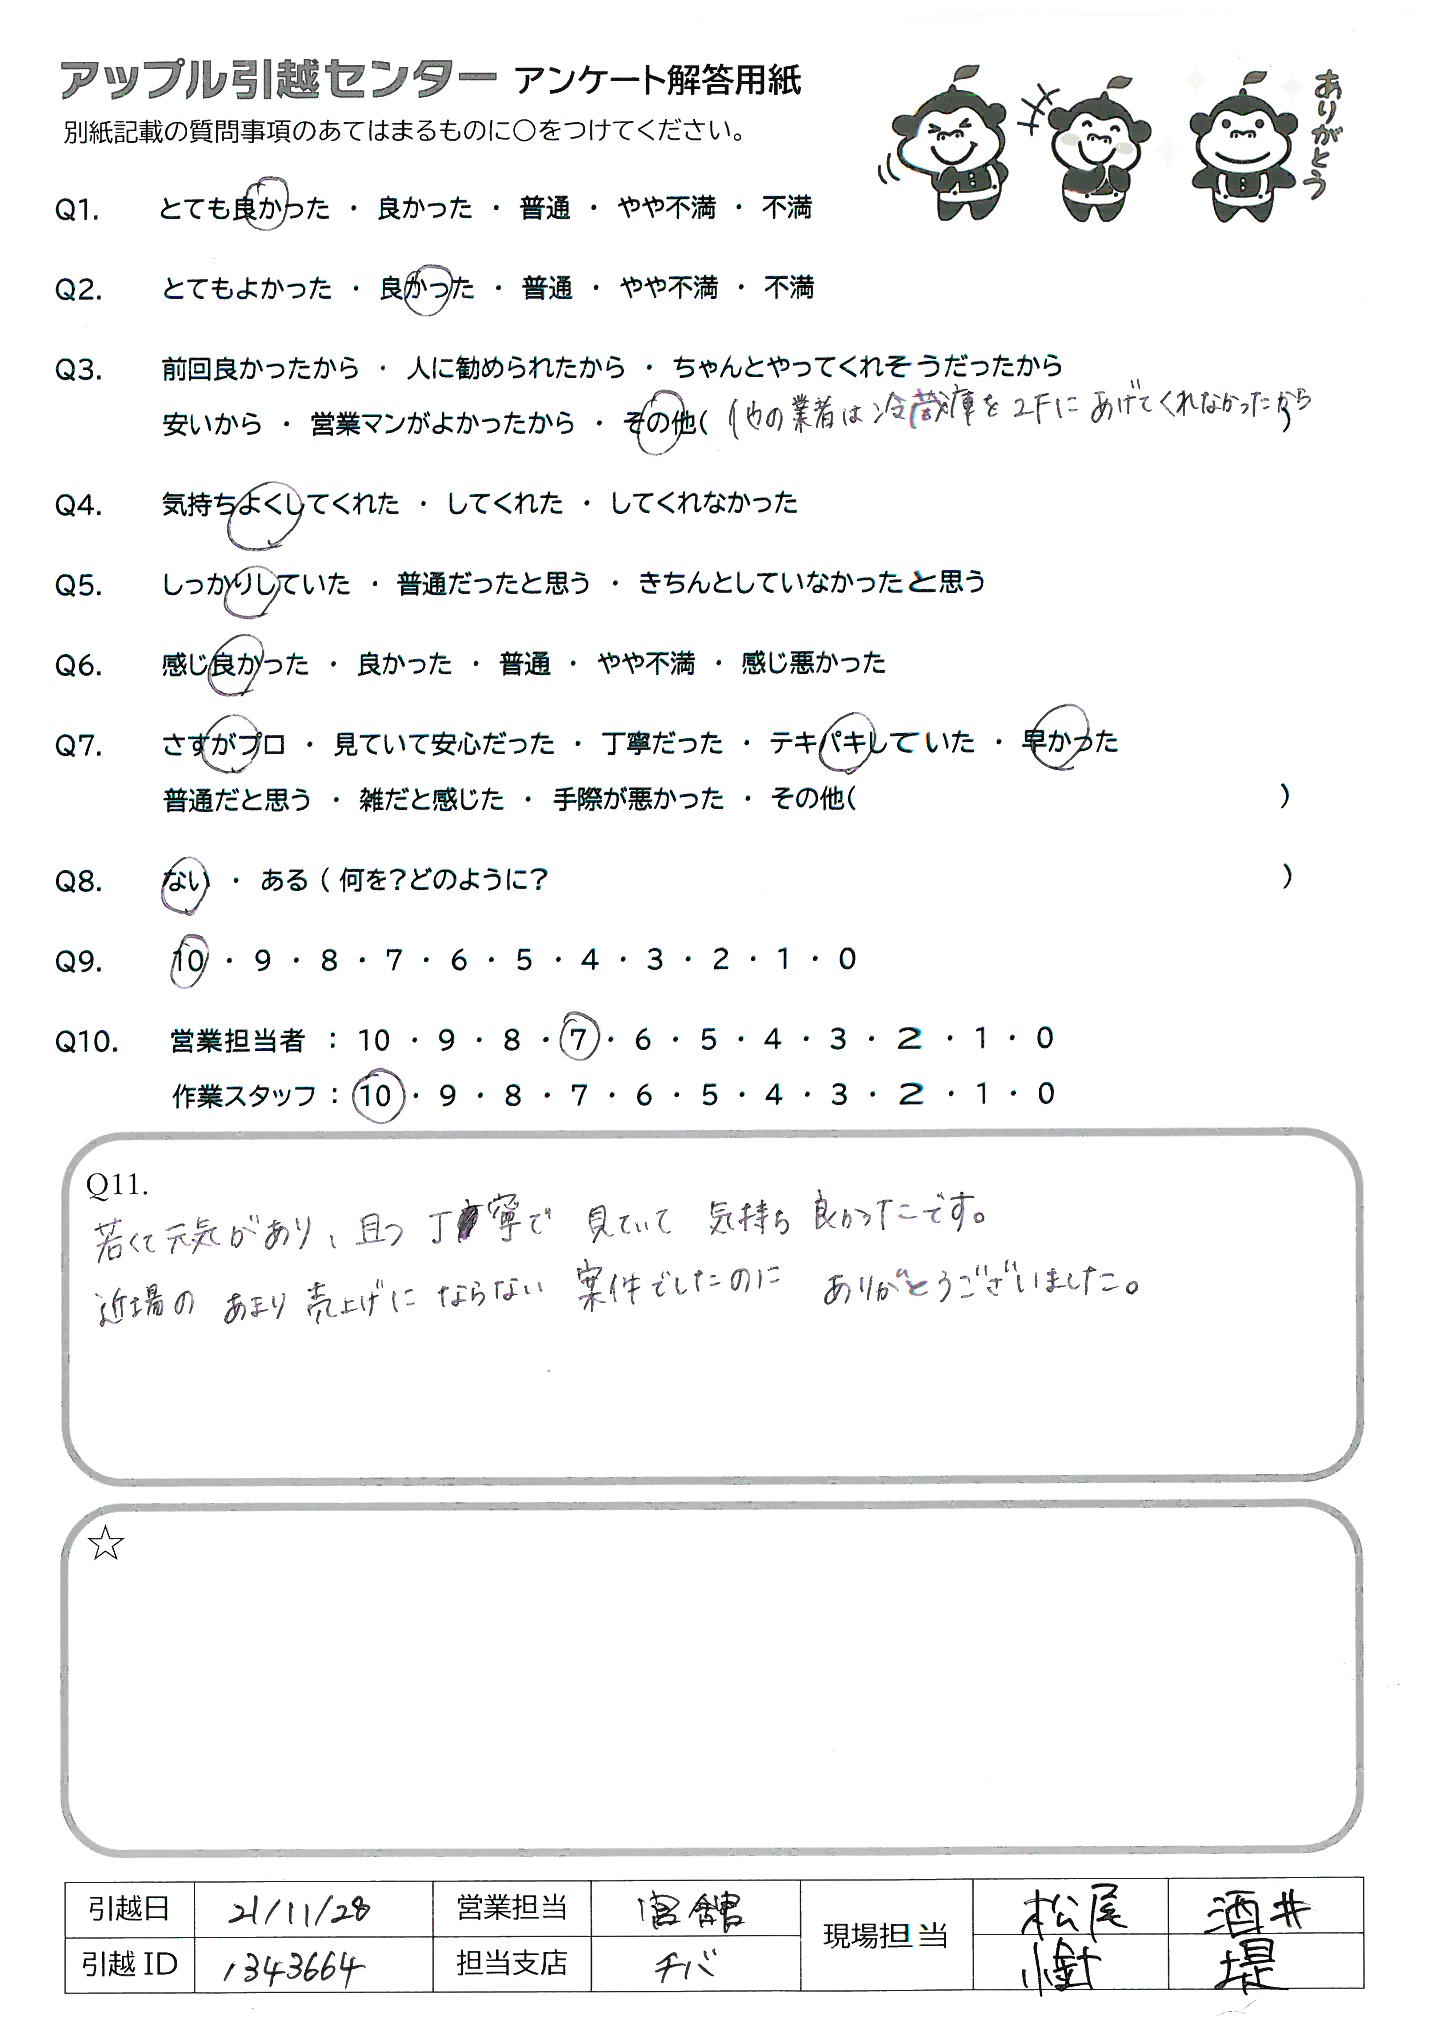 アップル引越センター アンケート解答用紙
別紙記載の質問事項のあてはまるものに○をつけてください。
ありがとう
Q1. とても良かった ・ 良かった ・ 普通 ・ やや不満 ・ 不満
Q2. とてもよかった ・ 良かった ・ 普通 ・ やや不満 ・ 不満
Q3. 前回良かったから ・ 人に勧められたから ・ ちゃんとやってくれそうだったから
安いから ・ 営業マンがよかったから ・ その他( 他の業者は冷蔵庫を2Fにあげてくれなかったから )
Q4. 気持ちよくしてくれた ・ してくれた ・ してくれなかった
Q5. しっかりしていた ・ 普通だったと思う ・ きちんとしていなかったと思う
Q6. 感じ良かった ・ 良かった ・ 普通 ・ やや不満 ・ 感じ悪かった
Q7. さすがプロ ・ 見ていて安心だった ・ 丁寧だった ・ テキパキしていた ・ 早かった
普通だと思う ・ 雑だと感じた ・ 手際が悪かった ・ その他( )
Q8. ない ・ ある ( 何を?どのように? )
Q9. 10 ・ 9 ・ 8 ・ 7 ・ 6 ・ 5 ・ 4 ・ 3 ・ 2 ・ 1 ・ 0
Q10. 営業担当者 : 10 ・ 9 ・ 8 ・ 7 ・ 6 ・ 5 ・ 4 ・ 3 ・ 2 ・ 1 ・ 0
作業スタッフ : 10 ・ 9 ・ 8 ・ 7 ・ 6 ・ 5 ・ 4 ・ 3 ・ 2 ・ 1 ・ 0
Q11.
若くて元気があり、且つ丁寧で 見ていて 気持ち良かったです。
近場の あまり売上げにならない 案件でしたのに ありがとうございました。
☆
引越日 21/11/28 営業担当 宮舘 現場担当 松尾 酒井
引越ID 1343664 担当支店 チバ 堤